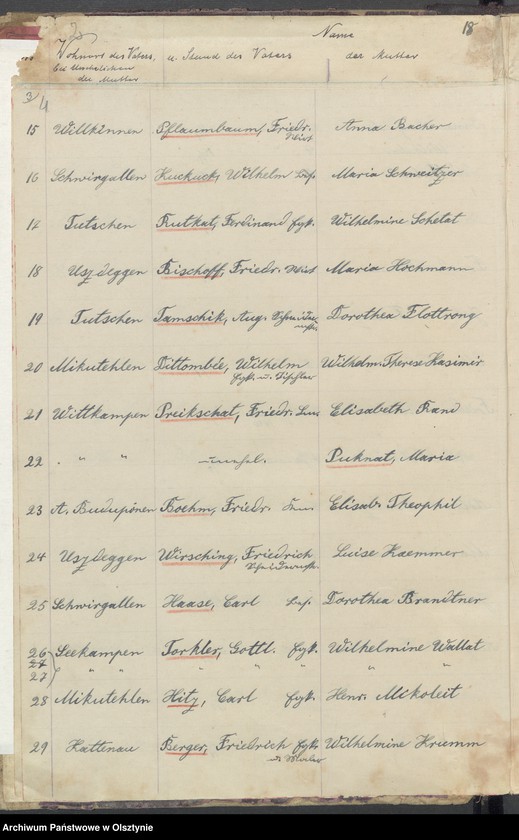 Name 18
No Wohnort des Vaters, u. Stand des Vaters der Mutter
bei Unehelichen
der Mutter
3/4
15 Willkinnen Pflaumbaum, Friedr. Wirt Anna Bacher
16 Schwirgallen Kuckuck, Wilhelm Maria Schweitzer
14 Tutschen Rutkat, Ferdinand Wilhelmine Schetat
18 Uszdeggen Bischoff, Friedr. Wirt Maria Hochmann
19 Tutschen Tamschik, Aug. Dorothea Flottrong
20 Mikutehlen Dittombée, Wilhelm Wilhelm. Therese Kasimir
u. Tischler
21 Wittkampen Preikschat, Friedr. Elisabeth Rand
22 " " unehel. Puknat, Maria
23 A. Buduponen Boehm, Friedr. Elisab. Theophil
24 Uszdeggen Wirsching, Friedrich Luise Kaemmer
25 Schwirgallen Haase, Carl Dorothea Brandtner
26 Seekampen Torkler, Gottl. Wilhelmine Wallat
27 " " " " " "
28 Mikutehlen Hitz, Carl Henr. Mikoleit
29 Kattenau Berger, Friedrich Wilhelmine Kriemm
Archiwum Państwowe w Olsztynie